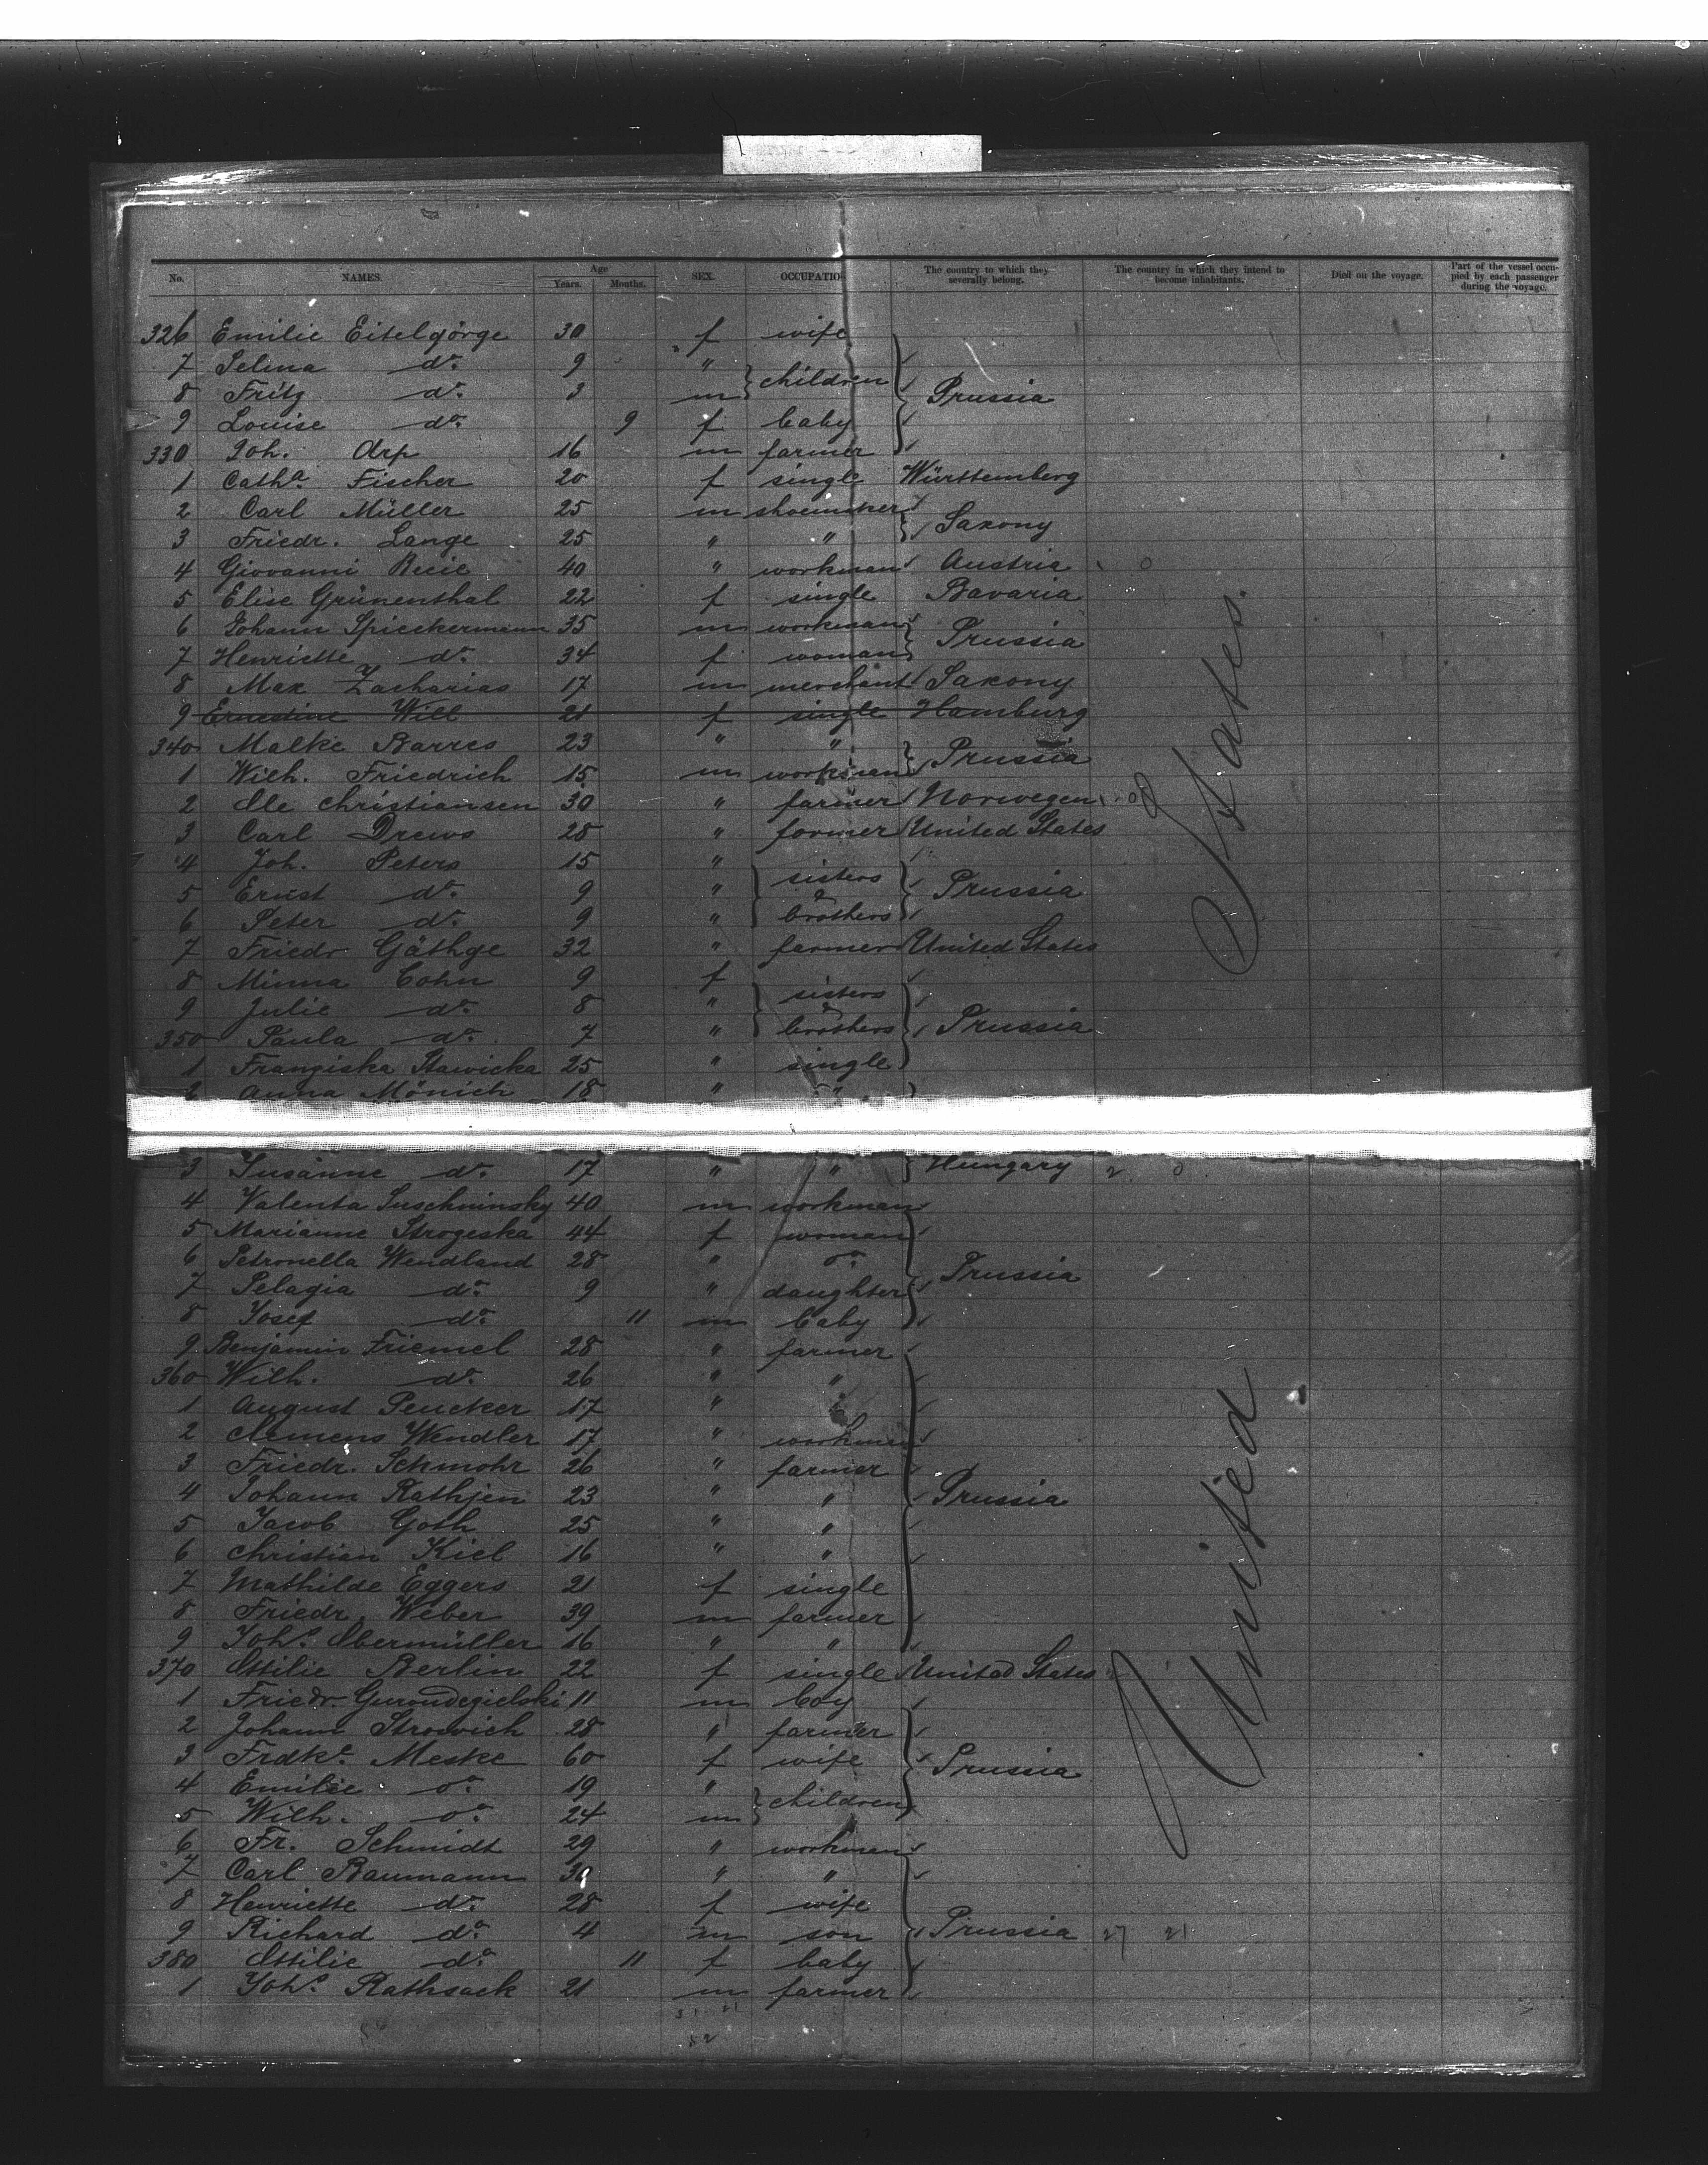 No. NAMES. Age Years. Months. SEX. OCCUPATIO The country to which they severally belong. The country in which they intend to become inhabitants. Died on the voyage. Part of the vessel occupied by each passenger during the voyage.
326 Emilie Eitelgörge 30 f wife
7 Selma do. 9 " children
8 Fritz do. 3 m Prussia
9 Louise do. 9 f baby
330 Joh. Arp 16 m farmer
1 Catha. Fischer 20 f single Württemberg
2 Carl Müller 25 m shoemaker
3 Friedr. Lange 25 " " Saxony
4 Giovanni 40 " workman Austria
5 Elise Grünenthal 22 f single Bavaria
6 Johann Spieckermann 35 m workman Prussia
7 Henriette do. 34 f woman
8 Max Zacharias 17 m merchant Saxony
9 Ernestine Will 21 f single Hamburg
340 Malke Barres 23 " " Prussia
1 Wilh. Friedrich 15 m workman
2 Ole Christiansen 30 " farmer Norwegen
3 Carl Drews 28 " former United States
4 Joh. Peters 15 " sisters
5 Ernst do. 9 " & Prussia
6 Peter do. 9 " brothers
7 Friedr Gäthge 32 " farmer United States
8 Minna Cohn 9 f sisters
9 Julie do. 8 " &
350 Paula do. 7 " brothers Prussia
1 Franziska Stawicka 25 " single
2 Anna Mönich 18 " "
3 Susanne do. 17 " " Hungary 2 0
4 Valenta Suschninsky 40 m workman
5 Marianne Strogeska 44 f woman
6 Petronella Wendland 28 " do. Prussia
7 Pelagia do. 9 " daughter
8 Josef do. 11 m baby
9 Benjamin Friemel 28 " farmer
360 Wilh. do. 26 " "
1 August Peucker 17 " "
2 Clemens Wendler 17 " workman
3 Friedr. Schmohr 26 " farmer
4 Johann Rathjen 23 " " Prussia
5 Jacob Goth 25 " "
6 Christian Kiel 16 " "
7 Mathilde Eggers 21 f single
8 Friedr. Weber 39 m farmer
9 Johs. Obermüller 16 " "
370 Ottilie Berlin 22 f single United States
1 Friedr. 11 m boy
2 Johann Strowich 28 " farmer
3 Frdke. Meske 60 f wife Prussia
4 Emilie do. 19 " children
5 Wilh. do. 24 m
6 Fr. Schmidt 29 " workman
7 Carl Baumann " "
8 Henriette do. 28 f wife
9 Richard do. 4 m son Prussia 27 21
380 Ottilie do. 11 f baby
1 Johs. Rathsack 21 m farmer
31 21
52
United States.